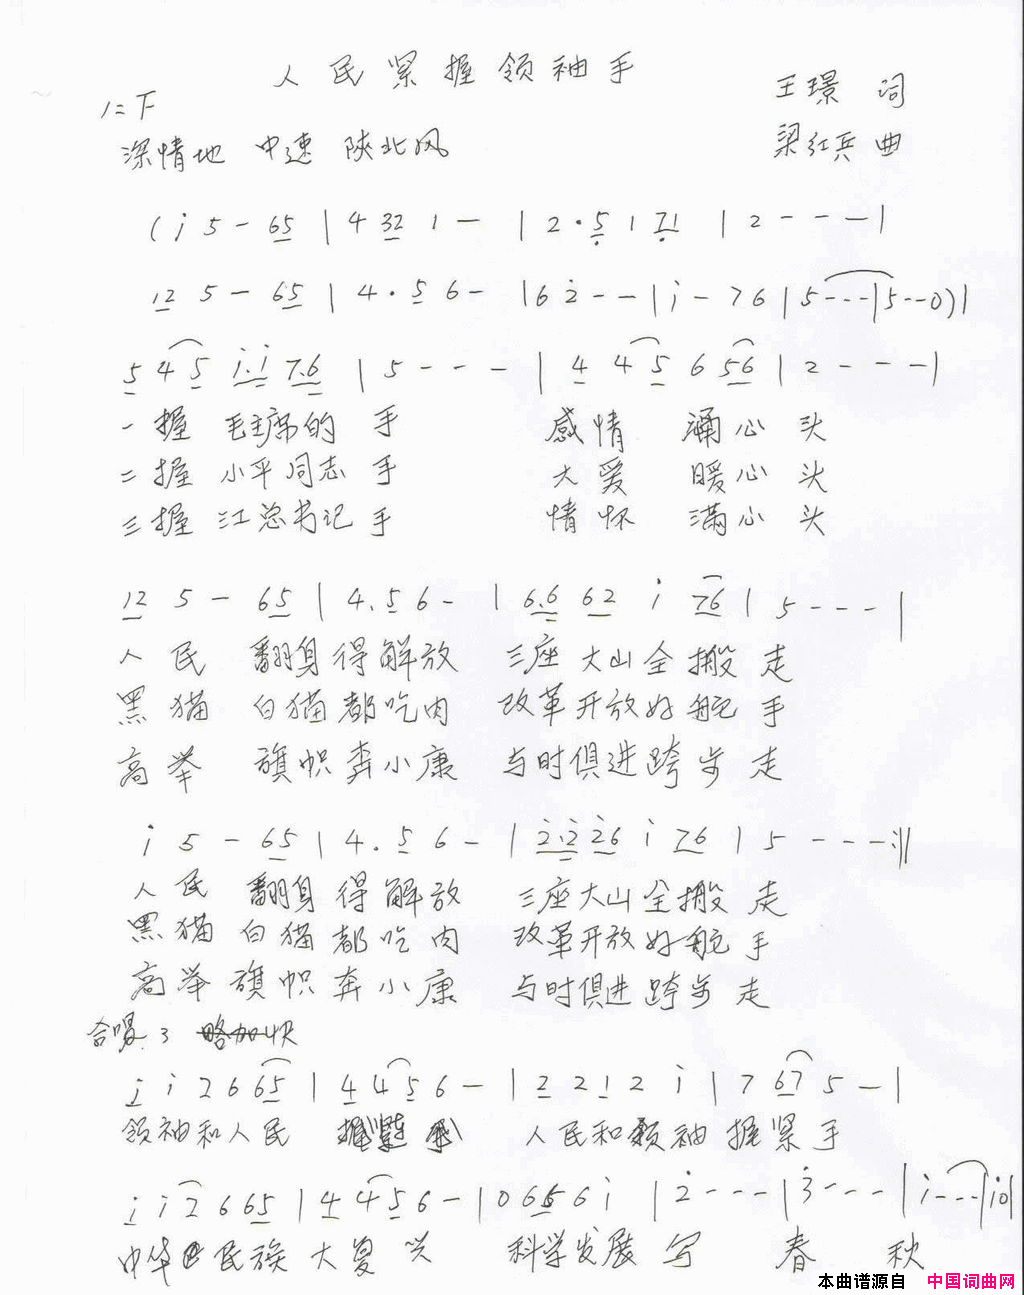 人民紧握领袖手
1=下
王璟 词
深情地 中速 陕北风
梁红兵 曲
(i 5 - 65 | 4 32 1 - | 2 · 5 1 71 | 2 - - - |
12 5 - 65 | 4 · 5 6 - | 6 2 - - | i - 7 6 | 5 - - - | 5 - - 0) |
5 4 5 i·i 7·6 | 5 - - - | 4 4 5 6 56 | 2 - - - |
一握 毛主席的 手 感情 涌心头
二握 小平同志 手 大爱 暖心头
三握 江总书记 手 情怀 满心头
12 5 - 65 | 4 · 5 6 - | 6·6 62 i 76 | 5 - - - |
人民 翻身得解放 三座大山全搬走
黑猫 白猫都吃肉 改革开放好舵手
高举 旗帜奔小康 与时俱进跨步走
i 5 - 65 | 4 · 5 6 - | 2·2 26 i 76 | 5 - - - :||
人民 翻身得解放 三座大山全搬走
黑猫 白猫都吃肉 改革开放好舵手
高举 旗帜奔小康 与时俱进跨步走
合唱 3 略加快
i i 2 6 65 | 4 4 5 6 - | 2 2 1 2 i | 7 67 5 - |
领袖和人民 握紧手 人民和领袖 握紧手
i i 2 6 65 | 4 4 5 6 - | 0 6 5 6 i | 2 - - - | 3 - - - | i - - - | i0 ||
中华民族大复兴 科学发展写春秋
本曲谱源自 中国词曲网